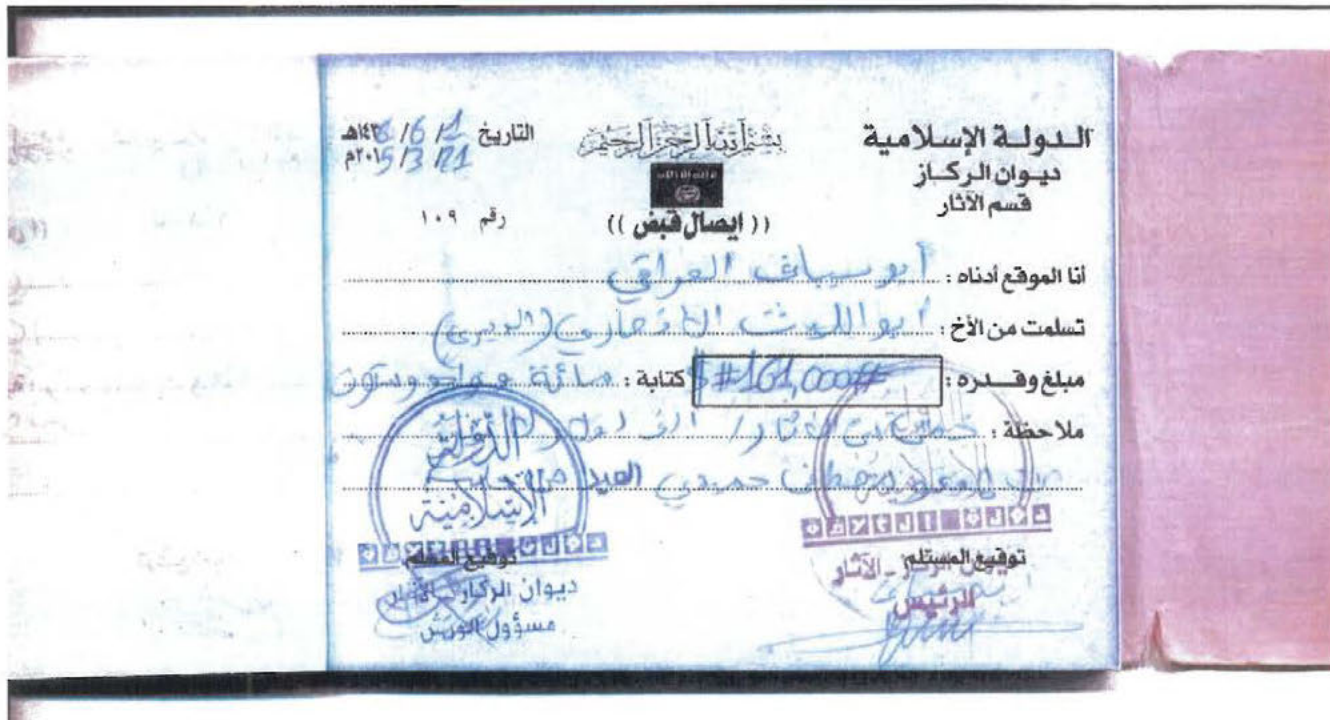 الدولة الإسلامية
ديوان الركاز
قسم الآثار
بسم الله الرحمن الرحيم
(( ايصال قبض ))
التاريخ 1/ 6/ ١٤٣6هـ
21/ 3/ ٢٠١5م
رقم ١٠٩
أنا الموقع أدناه : أبو سياف العراقي
تسلمت من الأخ : أبو الليث
مبلغ وقدره : #161,000#$ كتابة : مائة وواحد وستون
ملاحظة : الف دولار
حميدي
توقيع المستلم
ديوان الركاز - الآثار
الرئيس
الدولة
الإسلامية
توقيع المسلم
ديوان الركاز - الآثار
مسؤول الورش